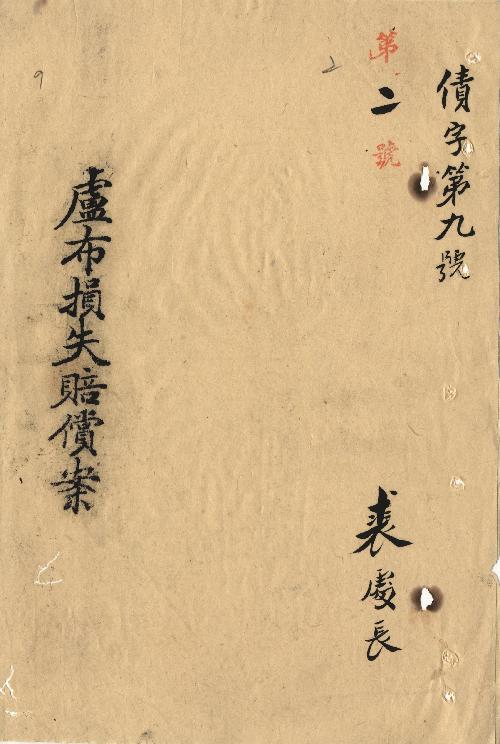 債字第九號
第二號
裘處長
盧布損失賠償案